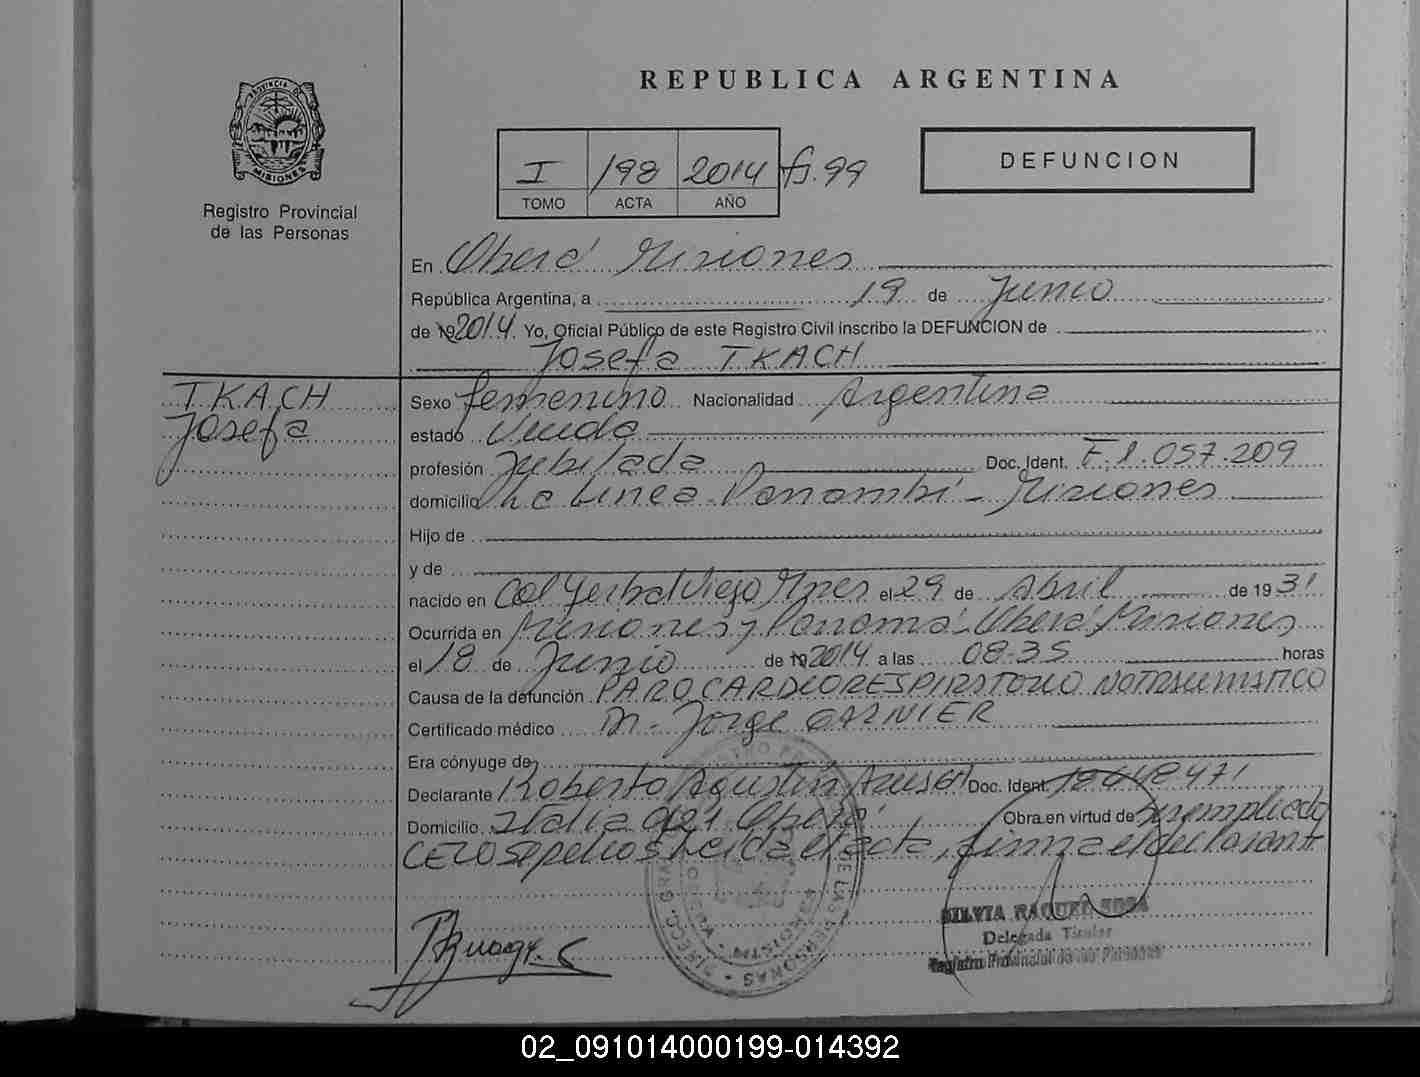 REPUBLICA ARGENTINA
PROVINCIA D
MISIONES
Registro Provincial
de las Personas
I 198 2014 fs. 99
TOMO ACTA AÑO
DEFUNCION
En Oberá Misiones
República Argentina, a 19 de Junio
de 192014 Yo, Oficial Público de este Registro Civil inscribo la DEFUNCION de
Josefa TKACH
TKACH
Josefa
Sexo femenino Nacionalidad Argentina
estado Viuda
profesión Jubilada Doc. Ident. F.1.057.209
domicilio Linea Panambí - Misiones
Hijo de
y de
nacido en Col Yerbal Viejo Mnes el 29 de Abril de 1931
Ocurrida en Misiones y Panamá - Oberá Misiones
el 18 de Junio de 192014 a las 08-35 horas
Causa de la defunción PARO CARDIORESPIRATORIO NO TRAUMATICO
Certificado médico Dr. Jorge GARNIER
Era cónyuge de
Declarante Roberto Agustín Doc. Ident. 471
Domicilio Italia Oberá Obra en virtud de Ser empleado
CELO sepelios Leida el acta, firma el declarante
DE LAS PERSONAS
SILVIA RAQUEL SOSA
Delegada Titular
Registro Provincial de las Personas
02_091014000199-014392